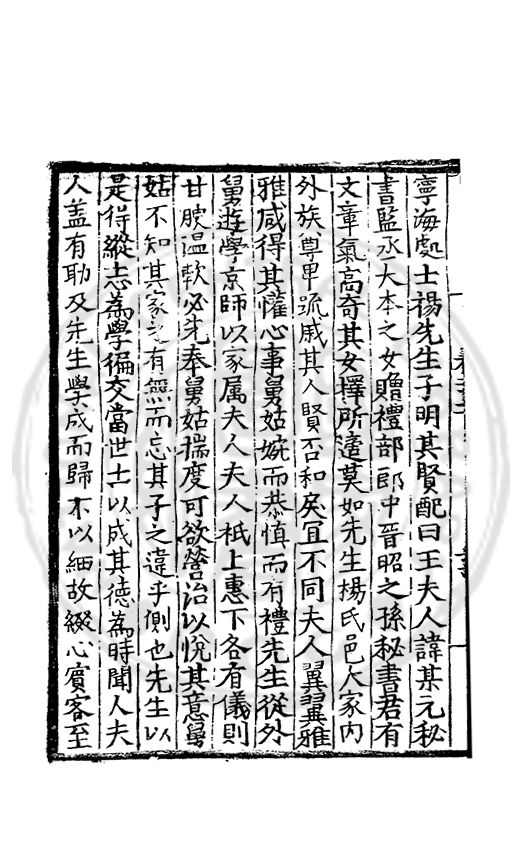 寧海處士楊先生子明其賢配曰王夫人諱某元秘
書監丞大本之女贈禮部郎中晉昭之孫秘書君有
文章氣高奇其女擇所適莫如先生楊氏邑大家内
外族尊卑疏戚其人賢否和戾宜不同夫人翼翼雅
雅咸得其懽心事舅姑婉而恭慎而有禮先生從外
舅遊學京師以家属夫人夫人袛上惠下各有儀則
甘脆温軟必先奉舅姑揣度可欲營治以悅其意舅
姑不知其家之有無而忘其子之違乎側也先生以
是得縱志為學徧交當世士以成其德為時聞人夫
人盖有助及先生學成而歸不以細故綴心賓客至